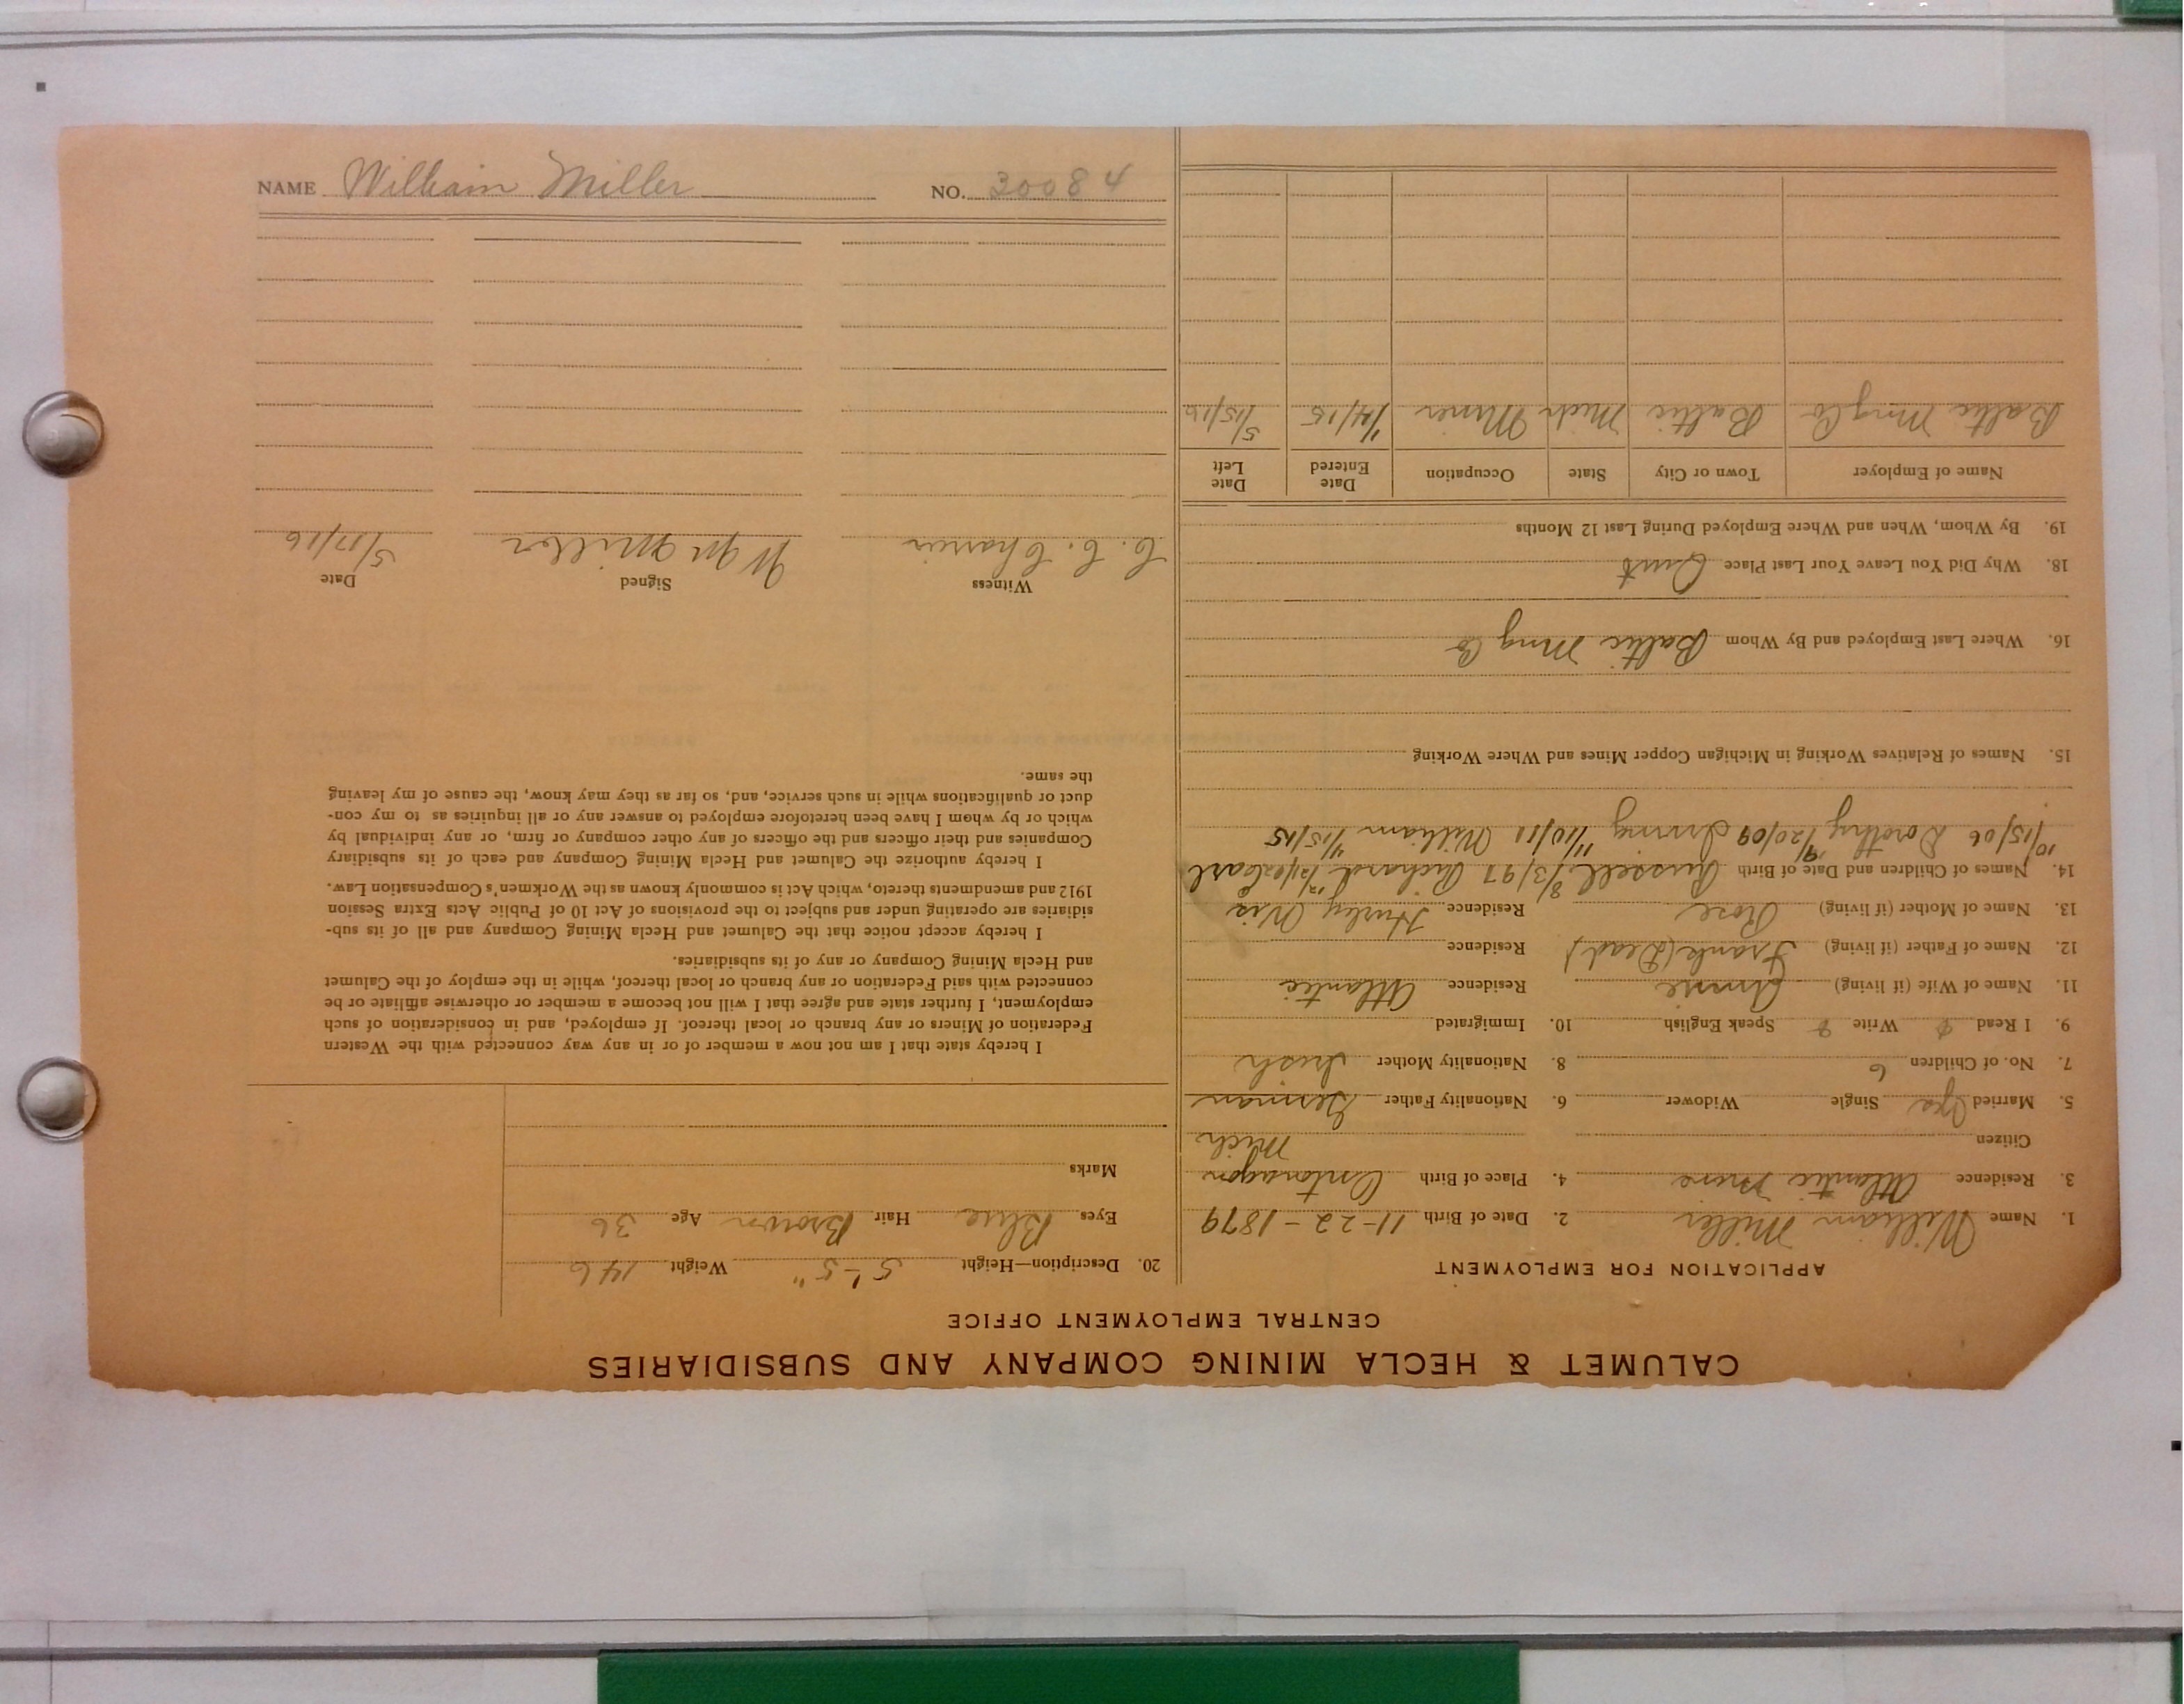 CALUMET & HECLA MINING COMPANY AND SUBSIDIARIES
CENTRAL EMPLOYMENT OFFICE
APPLICATION FOR EMPLOYMENT
1. Name William Miller 2. Date of Birth 11-22-1879
3. Residence Atlantic Mine 4. Place of Birth Ontonagon
Citizen Mich
5. Married Yes Single Widower 6. Nationality Father German
7. No. of Children 6 8. Nationality Mother Irish
9. I Read Write Speak English 10. Immigrated
11. Name of Wife (if living) Annie Residence Atlantic
12. Name of Father (if living) Frank (Dead) Residence
13. Name of Mother (if living) Rose Residence Hurley Wis
14. Names of Children and Date of Birth Russell 8/3/97 Richard Carl
10/15/06 Dorothy 9/20/09 Irving 11/10/11 William 4/15/15
15. Names of Relatives Working in Michigan Copper Mines and Where Working
16. Where Last Employed and By Whom Baltic Mng Co
18. Why Did You Leave Your Last Place Quit
19. By Whom, When and Where Employed During Last 12 Months
Name of Employer Town or City State Occupation Date Entered Date Left
Baltic Mng Co Baltic Mich Miner 1/4/15 5/15/16
20. Description—Height 5'-5" Weight 146
Eyes Blue Hair Brown Age 36
Marks
I hereby state that I am not now a member of or in any way connected with the Western
Federation of Miners or any branch or local thereof. If employed, and in consideration of such
employment, I further state and agree that I will not become a member or otherwise affiliate or be
connected with said Federation or any branch or local thereof, while in the employ of the Calumet
and Hecla Mining Company or any of its subsidiaries.
I hereby accept notice that the Calumet and Hecla Mining Company and all of its sub-
sidiaries are operating under and subject to the provisions of Act 10 of Public Acts Extra Session
1912 and amendments thereto, which Act is commonly known as the Workmen's Compensation Law.
I hereby authorize the Calumet and Hecla Mining Company and each of its subsidiary
Companies and their officers and the officers of any other company or firm, or any individual by
which or by whom I have been heretofore employed to answer any or all inquiries as to my con-
duct or qualifications while in such service, and, so far as they may know, the cause of my leaving
the same.
Witness Signed Date
C. C. Wm Miller 5/17/16
NAME William Miller NO. 30084